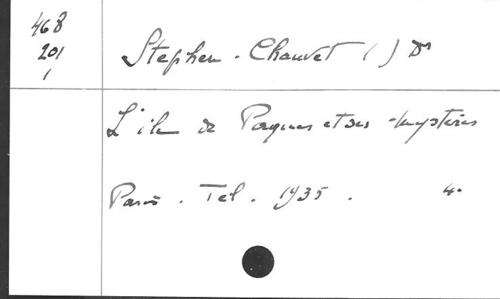 468
201
1
Stephen-Chauvet ( ) Dr
L'île de Pâques et ses mystères
Paris. Tel. 1935. 4°